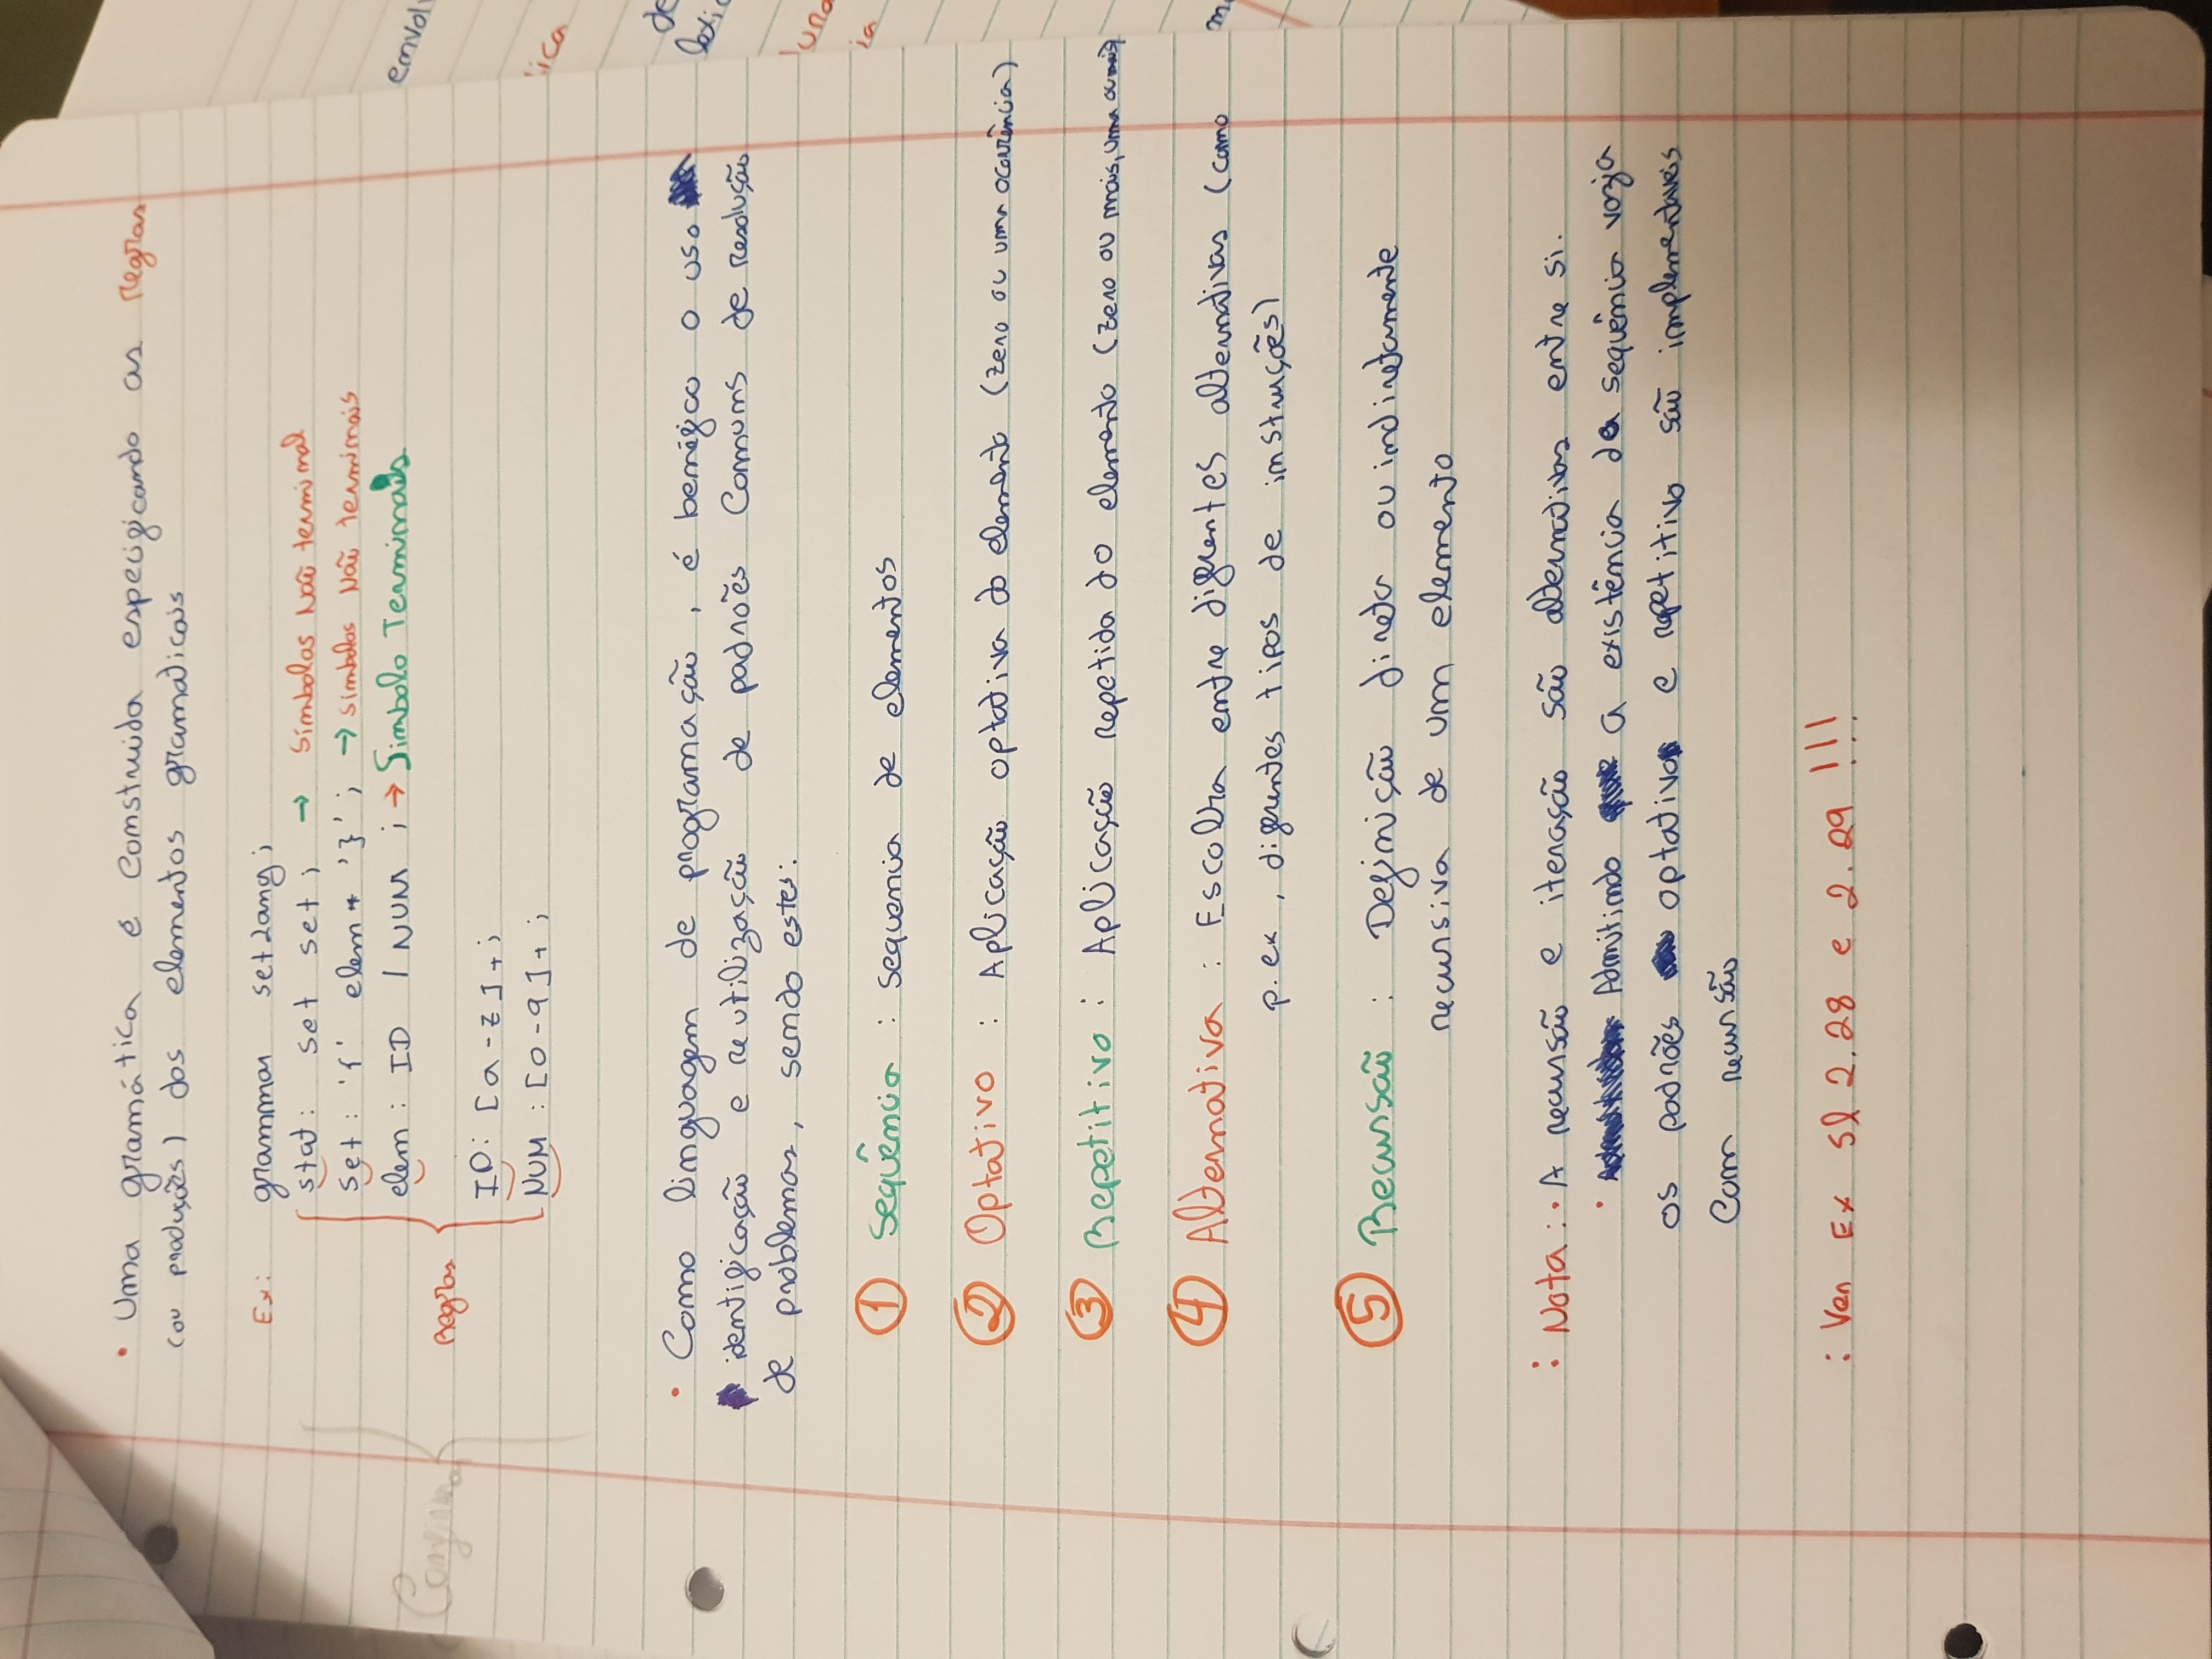 • Uma gramática é construida especificando as regras
(ou produções) dos elementos gramaticais
Ex: grammar setLang;
stat: set set; → Simbolos Não terminal
set: '{' elem* '}'; → simbolos Não terminais
elem: ID | NUM; → Simbolo Terminais
Regras
ID: [a-z]+;
NUM: [0-9]+;
• Como linguagem de programação, é benéfico o uso
identificação e reutilização de padrões comuns de resolução
de problemas, sendo estes:
① Sequência: sequencia de elementos
② Optativo: Aplicação optativa do elemento (zero ou uma ocorrência)
③ Repetitivo: Aplicação repetida do elemento (zero ou mais, uma ou mais)
④ Alternativa: Escolha entre diferentes alternativas (como
p.ex, diferentes tipos de instruções)
⑤ Recursão: Definição direta ou indiretamente
recursiva de um elemento
: Nota: • A recursão e iteração são alternativas entre si.
• Admitindo a existência da sequência vazia
os padrões optativo e repetitivo são implementaveis
com recursão
: Ver Ex Sl 2.28 e 2.29 !!!
envol
ica
de
lexic
ia